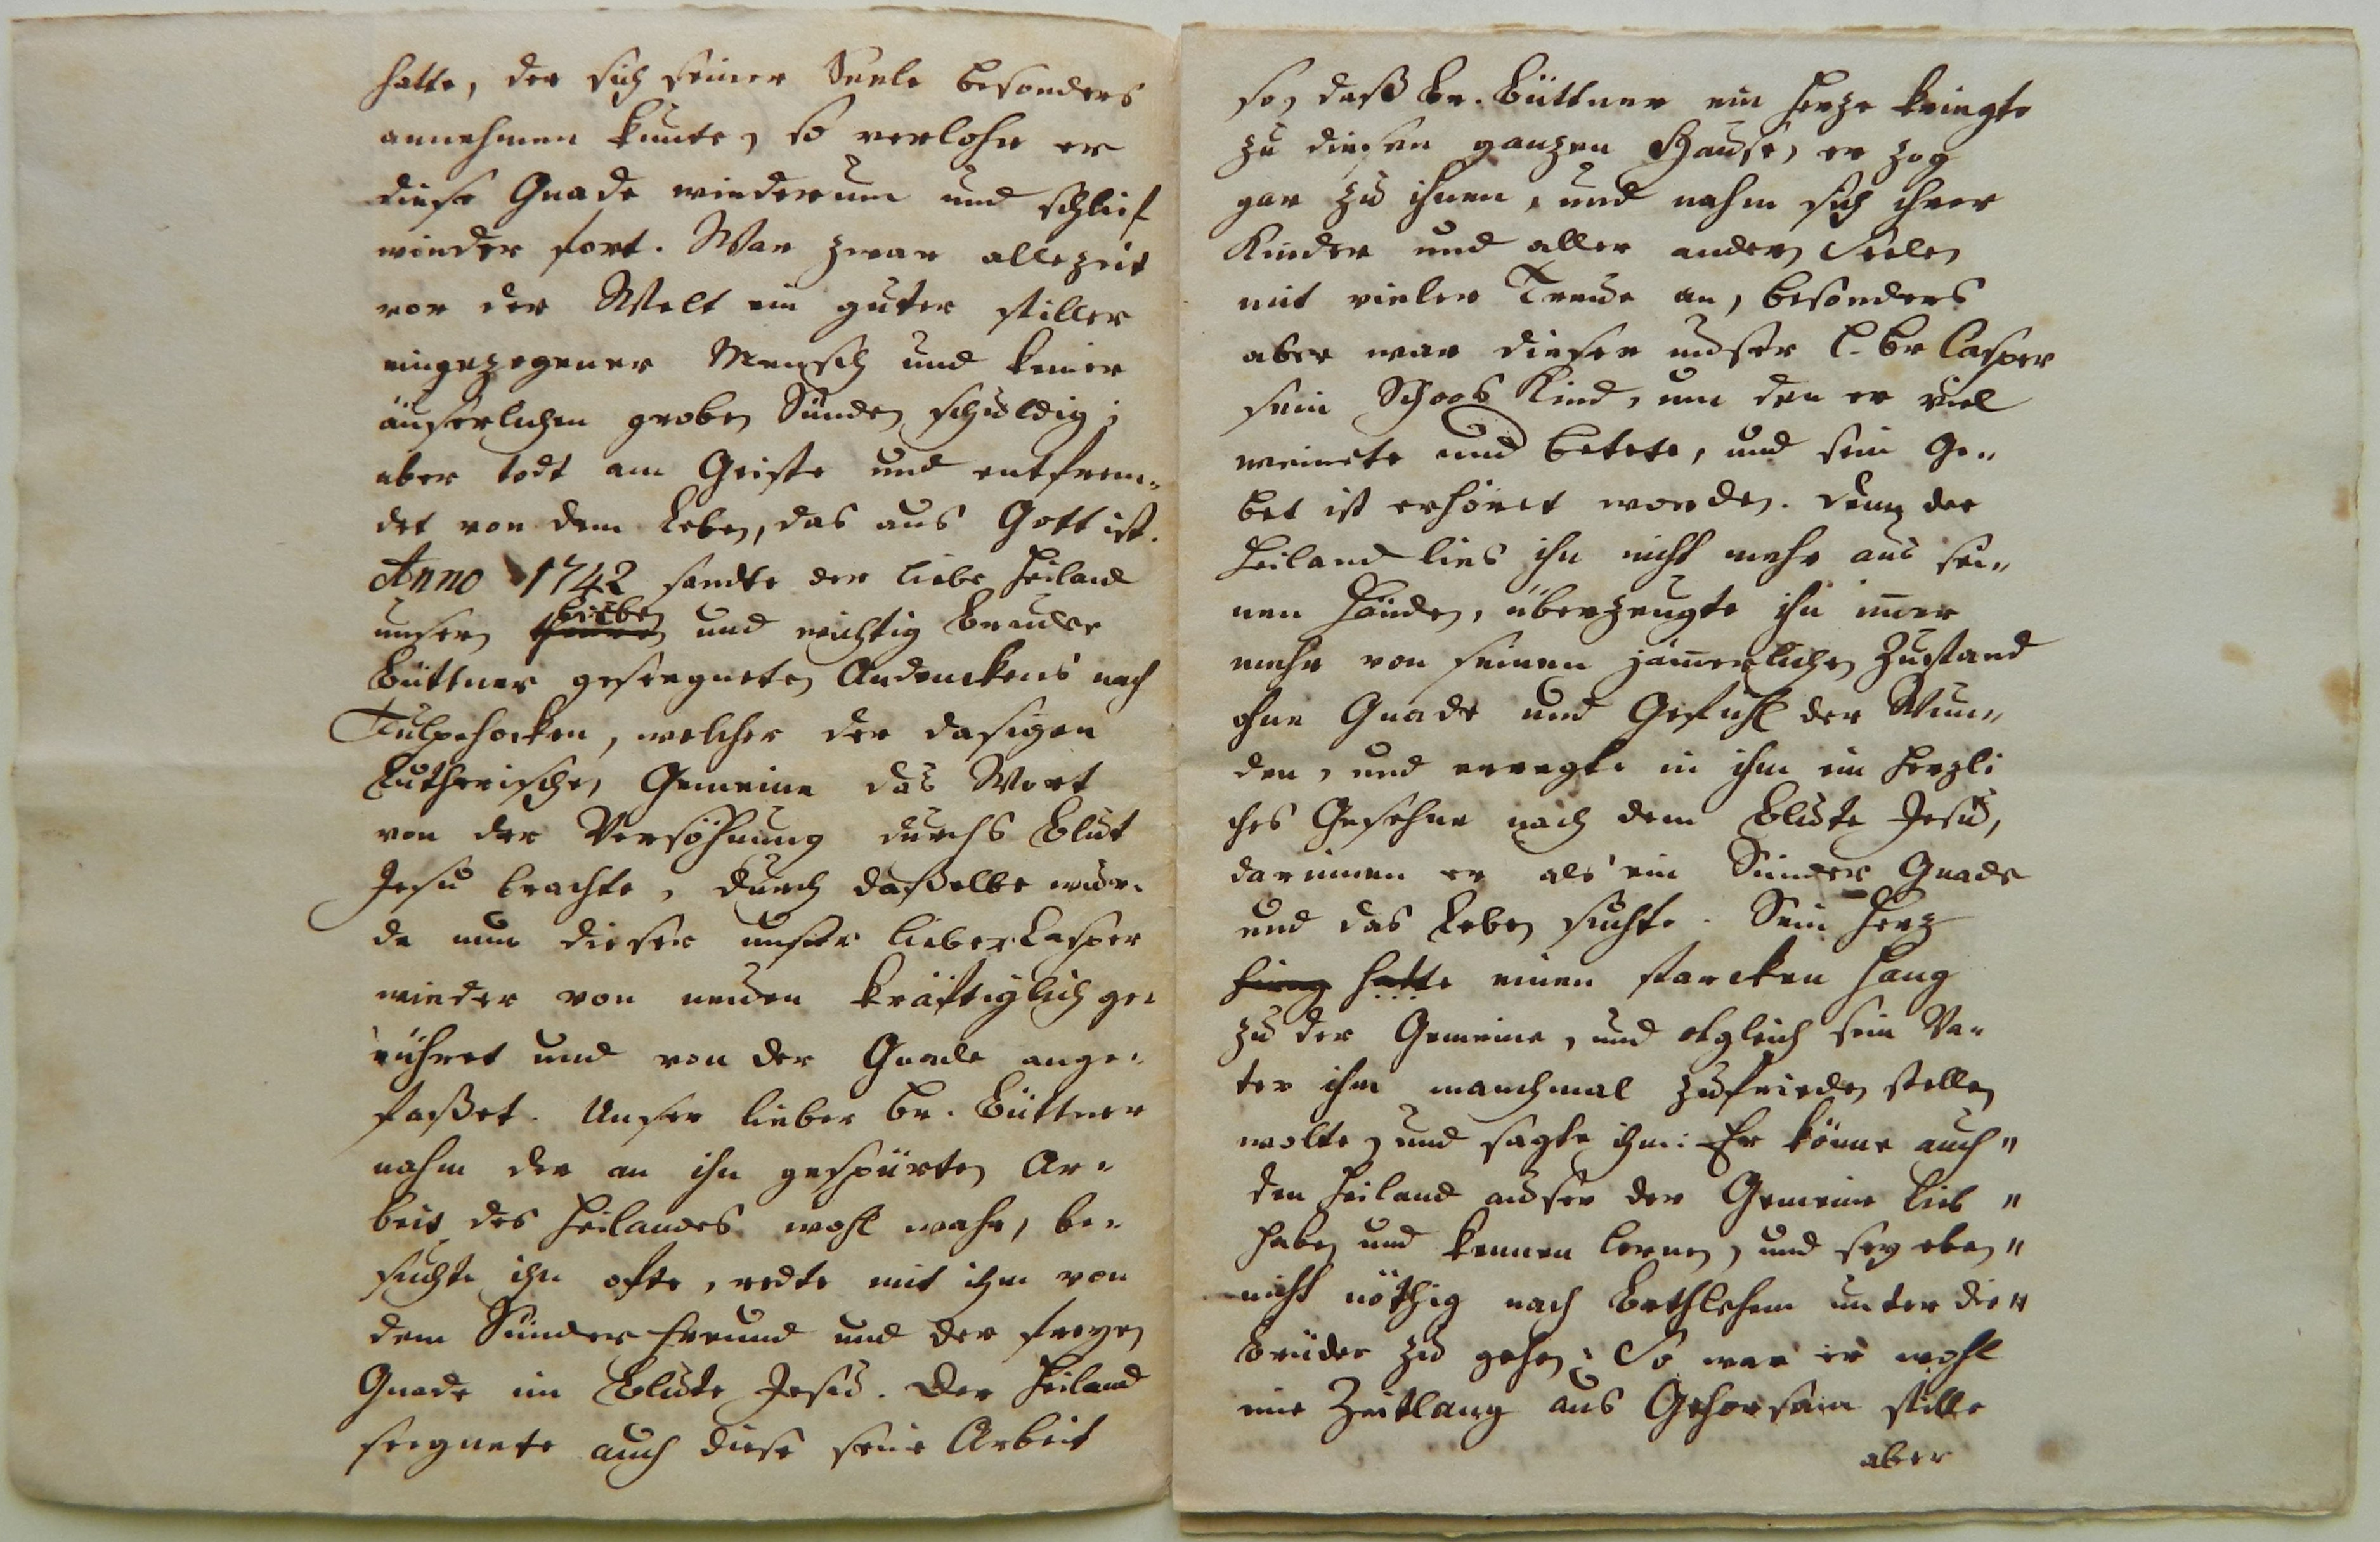 hatte, der sich seiner Seele besonders
annehmen kunte, so verlohr er
diese Gnade wiederum und schlief
wieder fort. War zwar allezeit
vor der Welt ein guter stiller
eingezogener Mensch und keiner
äuserlichen groben Sünden schuldig;
aber todt am Geiste und entfrem-
det von dem Leben, das aus Gott ist.
Anno 1742 sandte der liebe Heiland
unsern lieben und wichtig Bruder
Büttner geseegneten Andenckens nach
Tulpehocken, welcher der dasigen
Lutherischen Gemeine das Wort
von der Versöhnung durchs Blut
Jesu brachte, durch daßelbe wur-
de nun dieser unser lieber Casper
wieder von neuen kräftiglich ge-
rühret und von der Gnade ange-
faßet. Unser lieber Br. Büttner
nahm der an ihn gespürten Ar-
beit des Heilandes wohl wahr, be-
suchte ihn ofte, redte mit ihm von
dem Sünder Freund und der freyen
Gnade im Blute Jesu. Der Heiland
seegnete auch diese seine Arbeit
so, daß Br. Büttner ein Herze kriegte
zu diesen ganzen Hause, er zog
gar zu ihnen, und nahm sich ihrer
Kinder und aller andern Seelen
mit vieler Treue an, besonders
aber war dieser unser l. Br Casper
sein Schoos Kind, um den er viel
weinete und betete, und sein Ge-
bet ist erhöret worden. Denn der
Heiland lies ihn nicht mehr aus sei-
nen Händen, überzeugte ihn im̅er
mehr von seinen jäm̅erlichen Zustand
ohne Gnade und Gefühl der Wun-
den, und erregte in ihm ein herzli
ches Gesehne nach dem Blute Jesu,
darinnen er als ein Sünder Gnade
und das Leben suchte. Sein Herz
hieng hatte einen starcken Hang
zu der Gemeine, und obgleich sein Va-
ter ihm manchmal zufrieden stellen
wolte, und sagte ihm: Er könne auch "
den Heiland ausser der Gemeine lieb "
haben und kennen lernen, und sey eben "
nicht nöthig nach Bethlehem unter die "
Brüder zu gehen; So war er wohl
eine Zeitlang aus Gehorsam stille
aber